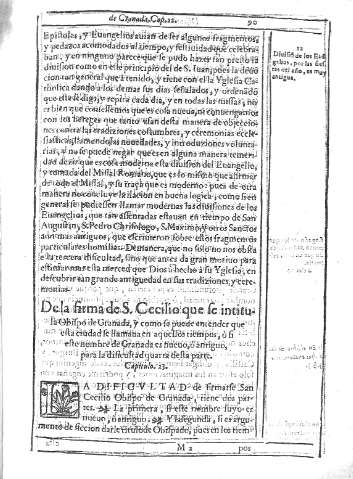 de Granada. Cap. 22. 90
Epistolas, y Euangelios auian de ser algunos fragmentos,
y pedaços acomodados al tiempo, y festiuidad que celebra-
ban, y en ninguno parece que se pudo hazer tan presto la
diuision como en este principio del de S. Iuan, pues la deuo-
cion tan general que à tenido, y tiene con el la Yglesia Ca-
tholica dando a los demas sus dias señalados, y ordenado
que este se diga, y repita cada dia, y en todas las missas, no
es bien que confessemos que es cosa nueua, ni conuengamos
con los hereges que tanto vsan desta manera de objecio-
nes contra las tradiciones costumbres, y ceremonias ecle-
siasticas, llamandolas nouedades, y introduziones volunta-
rias, y no se puede negar que es en alguna manera temeri-
dad dezir que es cosa moderna esta diuision del Euangelio,
y tomada del Missal Romano, que es lo mismo que afirmar
de todo el Missal, y su traça que es moderno: pues de otra
manera no concluye la ilacion en buena logica; como si en
general se pudiessen llamar modernas las diuisiones de los
Euangelios, que tan assentadas estauan en tiempo de San
Augustin, S. Pedro Chrisologo, S. Maximo, y otros Sanctos
aun mas antiguos, que escriuieron sobre estos fragmentos
particulares homilias. De manera, que no solo no nos obsta
esta tercera dificultad, sino que antes da gran motiuo para
estimar mas esta merced que Dios à hecho a su Yglesia, en
descubrir tan grande antiguedad en sus tradiciones, y cere-
monias.
12
Diuisiõ de los Euã
gelios, por las fies
tas del año, es muy
antigua.
De la firma de S. Cecilio que se intitu-
la Obispo de Granada, y como se puede entender que
esta ciudad se llamaua en aquellos tiempos, ò si
este nombre de Granada es nueuo, ò antiguo,
para la dificultad quarta desta parte.
Capitulo. 23.
LA DIFICVLTAD de firmarse San
Cecilio Obispo de Granada, tiene dos par
tes. La primera, si este nombre suyo es
nueuo, ò antiguo. Y la segunda, si es argu-
mento de ficcion darle titulo de Obispado, pues en los tiem-
M 2 pos